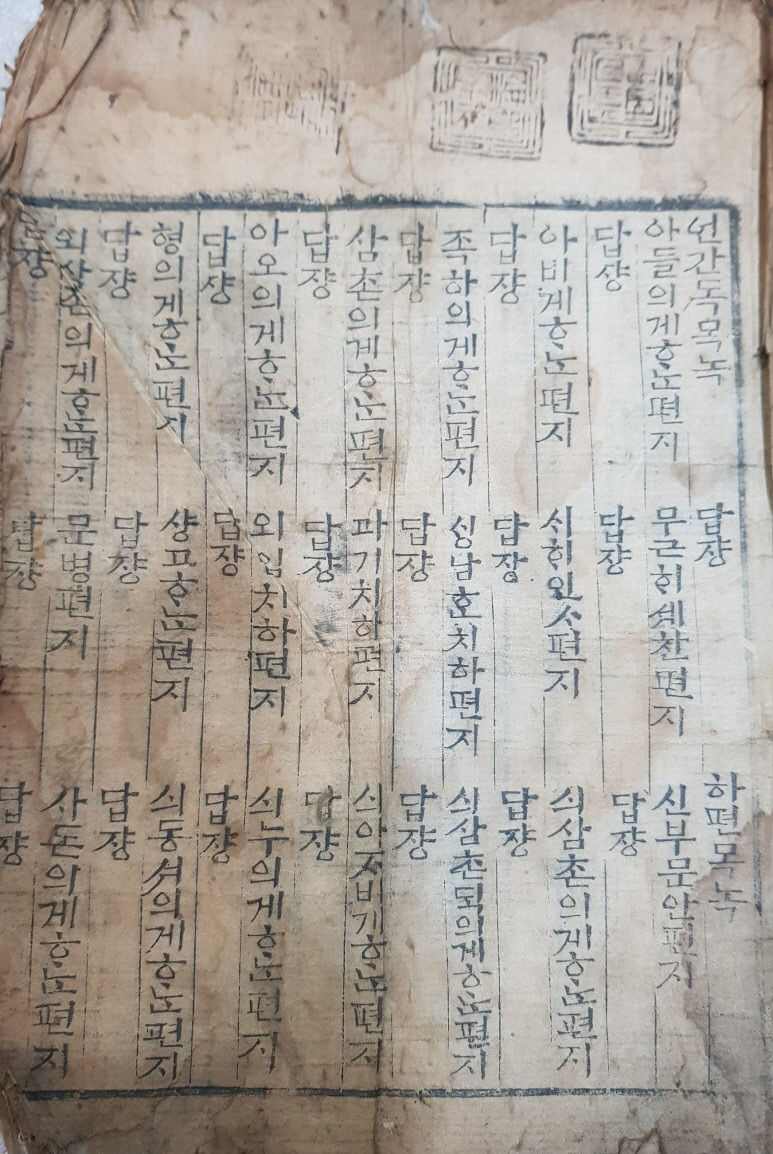 언간독목녹
아들의게ᄒᆞᄂᆞᆫ편지
답쟝
아비게ᄒᆞᄂᆞᆫ편지
답쟝
족하의게ᄒᆞᄂᆞᆫ편지
답쟝
삼촌의게ᄒᆞᄂᆞᆫ편지
답쟝
아오의게ᄒᆞᄂᆞᆫ편지
답쟝
형의게ᄒᆞᄂᆞᆫ편지
답쟝
외삼촌의게ᄒᆞᄂᆞᆫ편지
답쟝
답쟝
무근ᄒᆡ셰찬편지
답쟝
ᄉᆡᄒᆡ인ᄉᆞ편지
답쟝
ᄉᆡᆼ남ᄒᆞᆫ치하편지
답쟝
과거치하편지
답쟝
외임치하편지
답쟝
샹고ᄒᆞᄂᆞᆫ편지
답쟝
문병편지
답쟝
하편목녹
신부문안편지
답쟝
싀삼촌의게ᄒᆞᄂᆞᆫ편지
답쟝
싀삼촌ᄃᆡᆨ의게ᄒᆞᄂᆞᆫ편지
답쟝
싀아ᄌᆞ비게ᄒᆞᄂᆞᆫ편지
답쟝
싀누의게ᄒᆞᄂᆞᆫ편지
답쟝
싀동셔의게ᄒᆞᄂᆞᆫ편지
답쟝
사돈의게ᄒᆞᄂᆞᆫ편지
답쟝